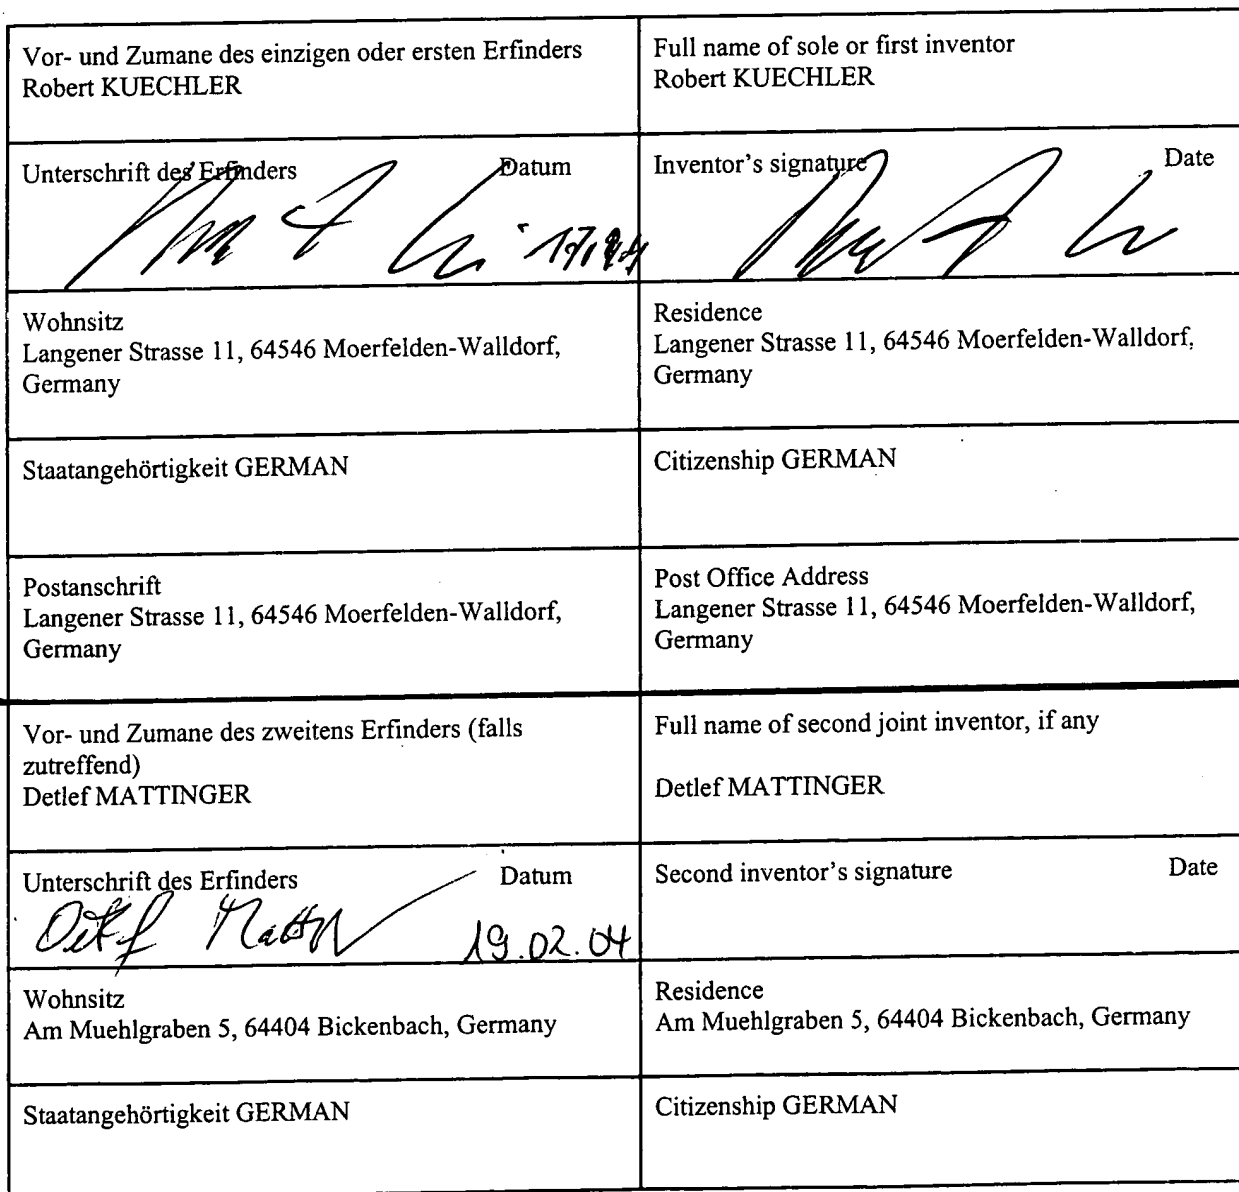 Vor- und Zumane des einzigen oder ersten Erfinders
Robert KUECHLER
Full name of sole or first inventor
Robert KUECHLER
Unterschrift des Erfinders Datum
Inventor's signature Date
Wohnsitz
Langener Strasse 11, 64546 Moerfelden-Walldorf,
Germany
Residence
Langener Strasse 11, 64546 Moerfelden-Walldorf,
Germany
Staatangehörtigkeit GERMAN
Citizenship GERMAN
Postanschrift
Langener Strasse 11, 64546 Moerfelden-Walldorf,
Germany
Post Office Address
Langener Strasse 11, 64546 Moerfelden-Walldorf,
Germany
Vor- und Zumane des zweitens Erfinders (falls
zutreffend)
Detlef MATTINGER
Full name of second joint inventor, if any
Detlef MATTINGER
Unterschrift des Erfinders Datum
19.02.04
Second inventor's signature Date
Wohnsitz
Am Muehlgraben 5, 64404 Bickenbach, Germany
Residence
Am Muehlgraben 5, 64404 Bickenbach, Germany
Staatangehörtigkeit GERMAN
Citizenship GERMAN